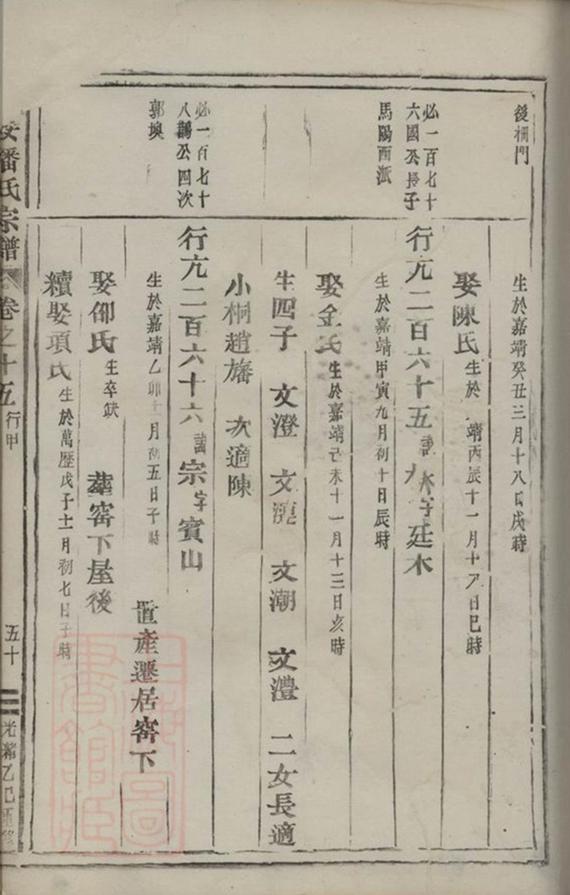 後柵門
生於嘉靖癸丑三月十八日戌時
娶陳氏生於 靖丙辰十一月十八日巳時
必一百七十
六國公長子
馬陽西派
行亢二百六十五諱 字廷木
生於嘉靖甲寅九月初十日辰時
娶金氏生於嘉靖己未十一月十三日亥時
生四子 文澄 文 文潮 文澧 二女長適
小桐趙旛 次適陳
必一百七十
八鸛公四次
郭墺
行亢二百六十六諱宗字賓山
生於嘉靖乙卯十二月初五日子時 置產遷居窰下
娶邵氏生卒缺 葬窰下屋後
續娶項氏生於萬歷戊子十二月初七日子時
潘氏宗譜 卷之十五 行甲 五十 光緒乙巳重修
上海圖書館藏